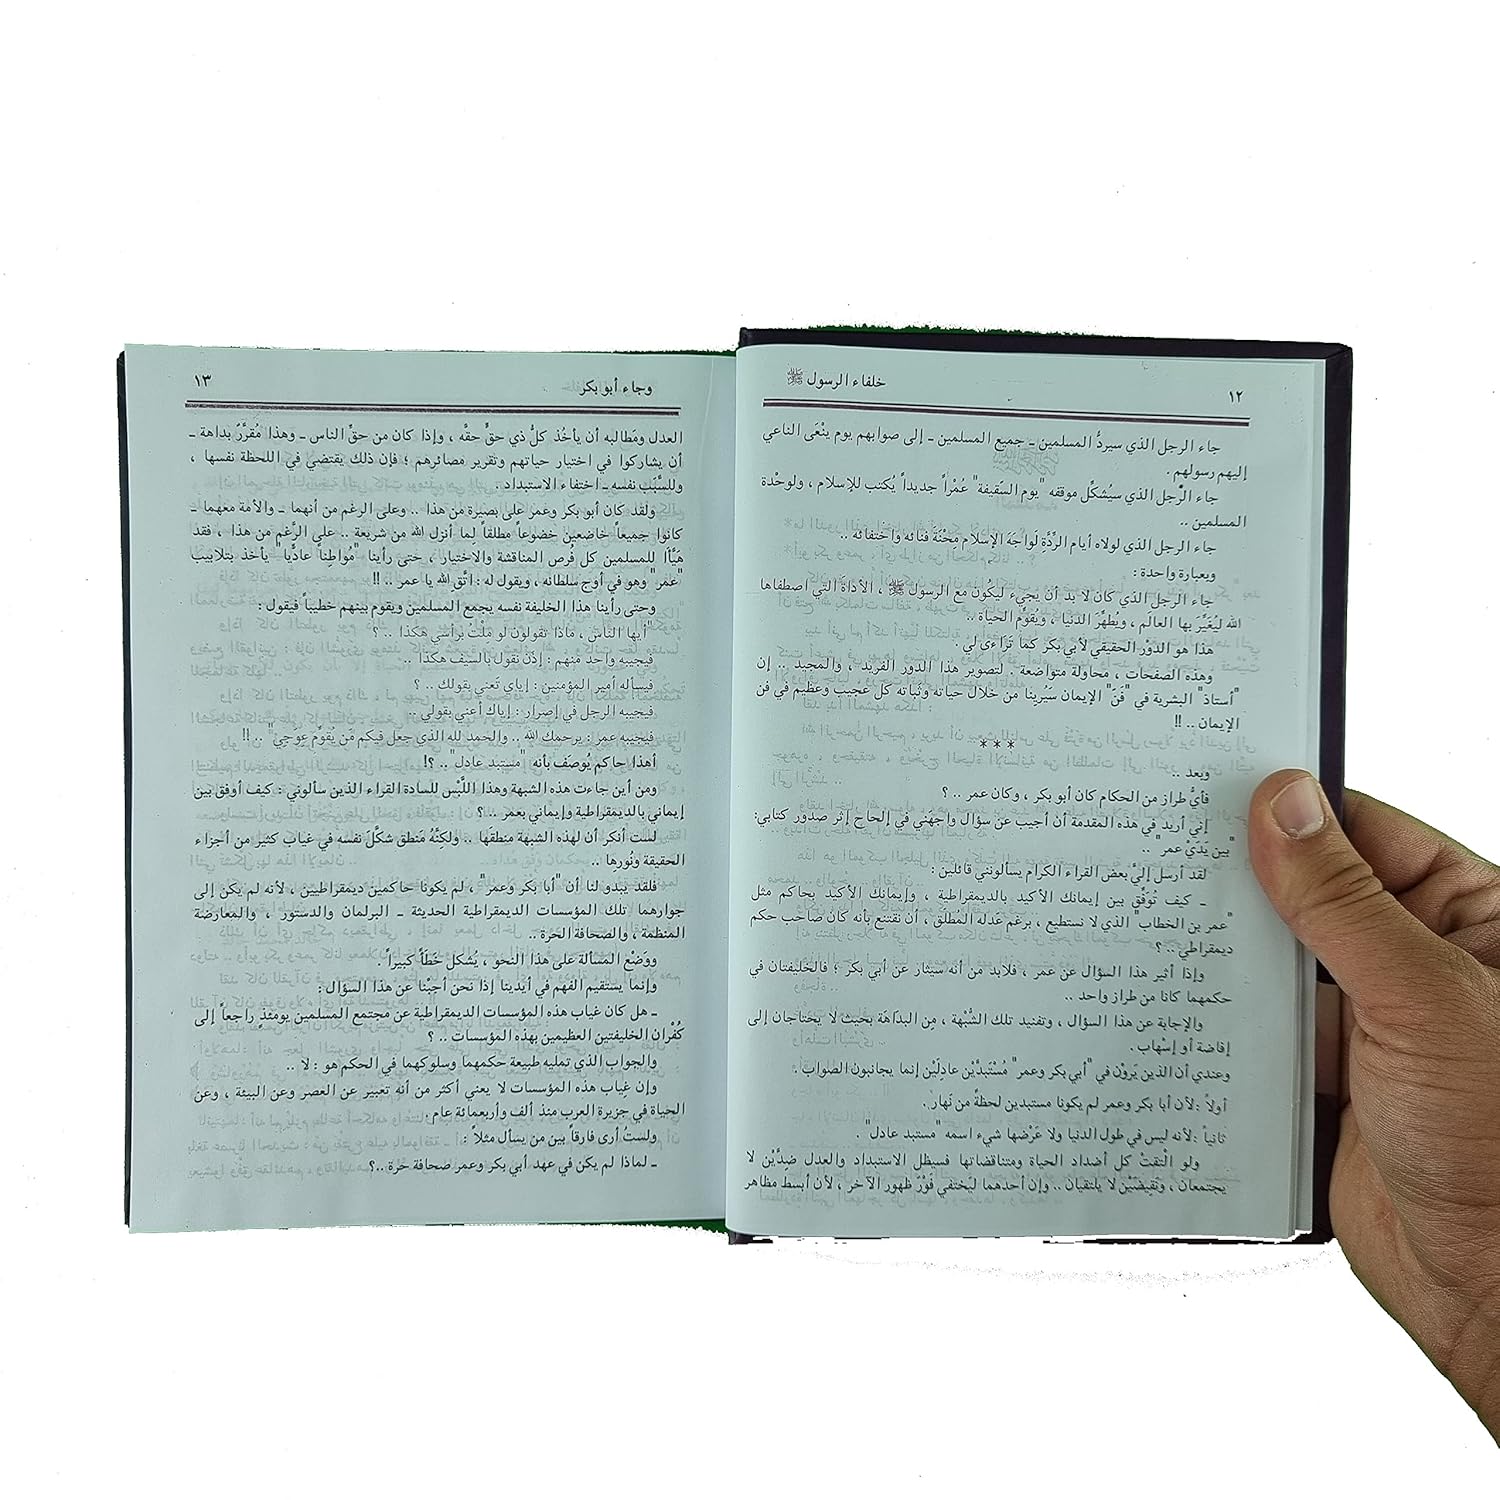 ١٢
خلفاء الرسول ﷺ
جاء الرجل الذي سيردُّ المسلمين ـ جميع المسلمين ـ إلى صوابهم يوم ينْعَى الناعي
إليهم رسولهم .
جاء الرَّجل الذي سيُشكِّل موقفه "يوم السَّقيفة" عُمْراً جديداً يُكتب للإسلام ، ولوحْدة
المسلمين ..
جاء الرجل الذي لولاه أيام الردَّة لَواجَهَ الإسلام مِحْنَةَ فَنائه واختفائه ..
وبعبارة واحدة :
جاء الرجل الذي كان لا بد أن يَجيء ليكُون مع الرسول ﷺ ، الأداة التي اصطفاها
الله ليُغَيِّرَ بها العالم ، ويُطهِّرَ الدنيا ، ويُقوِّم الحياة ..
هذا هو الدَّوْر الحقيقي لأبي بكر كما تَراءى لي .
وهذه الصفحات ، محاولة متواضعة . لتصوير هذا الدور الفريد ، والمجيد .. إن
"أستاذ" البشرية في "فَنّ" الإيمان سَيُرينا من خلال حياته وثَباته كل عجيب وعظيم في فن
الإيمان .. !!
***
وبعد ..
فأيُّ طراز من الحكام كان أبو بكر ، وكان عمر .. ؟
إني أريد في هذه المقدمة أن أجيب عن سؤال واجهني في إلحاح إثر صدور كتابي:
"بين يَدَيْ عمر" ..
لقد أرسل إليّ بعض القراء الكرام يسألونني قائلين :
ـ كيف تُوَفِّق بين إيمانك الأكيد بالديمقراطية ، وإيمانك الأكيد بحاكم مثل
"عمر بن الخطاب" الذي لا نستطيع ، برغم عَدله المُطلَق ، أن نقتنع بأنه كان صاحب حكم
ديمقراطي .. ؟
وإذا أثير هذا السؤال عن عمر ، فلابد من أنه سيثار عن أبي بكر ؛ فالخليفتان في
حكمهما كانا من طراز واحد ..
والإجابة عن هذا السؤال ، وتفنيد تلك الشُّبْهة ، مِن البداهَة بحيث لا يحتاجان إلى
إفاضة أو إسْهاب .
وعندي أن الذين يَرَوْن في "أبي بكر وعمر" مُسْتَبدَّيْن عادِلَيْن إنما يجانبون الصَّواب .
أولاً : لأن أبا بكر وعمر لم يكونا مستبدين لحظةً من نَهار .
ثانياً : لأنه ليس في طول الدنيا ولا عَرْضها شيء اسمه "مستبد عادل" .
ولو الْتقتْ كل أضداد الحياة ومتناقضاتها فسيظل الاستبداد والعدل ضِدَّيْن لا
يجتمعان ، ونَقِيضَيْن لا يلتقيان .. وإن أحدهما ليَختفي فَوْرَ ظهور الآخر ، لأن أبسط مظاهر
وجاء أبو بكر
١٣
العدل ومَطالبه أن يأخُذ كلُّ ذي حقٍّ حقه ، وإذا كان من حقِّ الناس ـ وهذا مُقرَّرٌ بداهة ـ
أن يشاركوا في اختيار حياتهم وتقرير مصائرهم ؛ فإن ذلك يقتضي في اللحظة نفسها ،
وللسَّبَب نفسه ـ اختفاء الاستبداد .
ولقد كان أبو بكر وعمر على بصيرة من هذا .. وعلى الرغم من أنهما ـ والأمة معهما ـ
كانوا جميعاً خاضعين خضوعاً مطلقاً لِما أنزل الله من شريعة .. على الرَّغم من هذا ، فقد
هَيَّأا للمسلمين كل فُرص المناقشة والاختيار ، حتى رأينا "مُواطِناً عاديًّا" يأخذ بتلابيب
"عمر" وهو في أوج سلطانه ، ويقول له : اتَّقِ الله يا عمر .. !!
وحتى رأينا هذا الخليفة نفسه يجمع المسلمين ويقوم بينهم خطيباً فيقول :
"أيها الناس ، ماذا تقولون لو مِلْتُ برأسي هكذا .. ؟
فيجيبه واحد منهم : إذَنْ نقول بالسَّيف هكذا ..
فيسأله أمير المؤمنين : إياي تَعني بقولك .. ؟
فيجيبه الرجل في إصرار : إياك أعني بقولي .
فيجيبه عمر : يرحمك الله .. والحمد لله الذي جعل فيكم مَن يُقَوِّم عِوَجي" .. !!
أهذا حاكم يُوصَف بأنه "مستبد عادل" .. ؟!
ومن أين جاءت هذه الشبهة وهذا اللَّبْس للسادة القراء الذين سألوني : كيف أوفق بين
إيماني بالديمقراطية وإيماني بعمر .. ؟
لست أنكر أن لهذه الشبهة منطقَها .. ولكنَّهُ مَنطق شكَّلَ نفسه في غياب كثير من أجزاء
الحقيقة ونُورِها ..
فلقد يبدو لنا أن "أبا بكر وعمر" ، لم يكونا حاكمين ديمقراطيين ، لأنه لم يكن إلى
جوارهما تلك المؤسسات الديمقراطية الحديثة ـ البرلمان والدستور ، والمعارضة
المنظمة ، والصحافة الحرة ..
ووَضْع المسألة على هذا النحو ، يُشكل خَطَأ كبيراً .
وإنما يستقيم الفهم في أيدينا إذا نحن أجبْنا عن هذا السؤال :
ـ هل كان غياب هذه المؤسسات الديمقراطية عن مجتمع المسلمين يومئذٍ راجعاً إلى
كُفْران الخليفتين العظيمين بهذه المؤسسات .. ؟
والجواب الذي تمليه طبيعة حكمهما وسلوكهما في الحكم هو : لا ..
وإن غياب هذه المؤسسات لا يعني أكثر من أنه تعبير عن العصر وعن البيئة ، وعن
الحياة في جزيرة العرب منذ ألف وأربعمائة عام .
ولستُ أرى فارقاً بين من يسأل مثلاً :
ـ لماذا لم يكن في عهد أبي بكر وعمر صحافة حرة ..؟